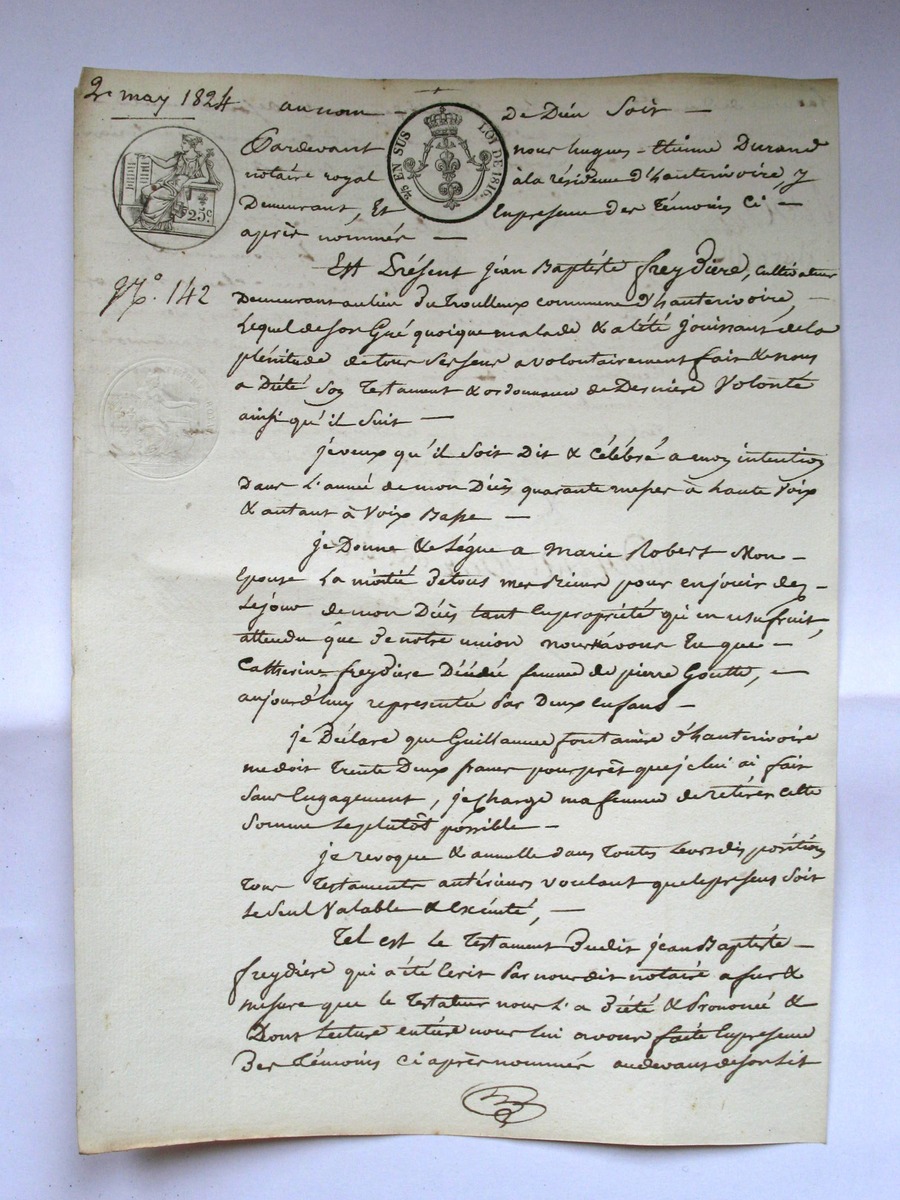 2 may 1824
au nom — de Dieu Soit —
Pardevant nous hugues-Etienne Durand
notaire royal à la résidence d'hauterivoire, y
Demeurant, Et En presence des Témoins Ci —
après nommés —
25 EN SUS LOI DE 1816.
25c.
N.° 142
Est Présent jean Baptiste freydière, cultivateur
Demeurant au lieu du Troulleux commune d'hauterivoire, —
Lequel de son Gré quoique malade & alété jouissant de la
plénitude de tous Ses Sens a volontairement fait & nous
a Dicté Son Testament & ordonnance de Derniere Volonté
ainsi qu'il Suit —
je veux qu'il Soit Dit & Célébré a mon intention
Dans L'année de mon Décès quarante messes à haute Voix
& autant à Voix Basse —
je Donne & Lègue a Marie Robert Mon -
Epouse La moitié de tous mes Biens pour en jouir dez -
Le jour de mon Décès tant En propriété qu'en usufruit,
attendu que de notre union nous n'avons Eu que —
Catherine freydière Décédée femme de pierre Goutte, —
aujourd'huy representée Par Deux Enfans —
je Déclare que Guillaume fontaniere d'hauterivoire
me doit Trente Deux francs pour prêt que je lui ai fait
Sans Engagement, je charge ma femme de retirer Cette
Somme Le plutôt possible —
je revoque & annulle dans Toutes Leurs dispositions
Tous Testaments antérieurs voulant que le present Soit
Le Seul Valable & Exécuté, —
Tel est Le Testament Dudit jean Baptiste —
freydière qui a été Ecrit Par nous dit notaire a fur &
mesure que le Testateur nous L'a Dicté & Prononcé &
Dont Lecture entière nous lui avons faite En presence
Des Témoins Ci après nommés au devant de son Lit